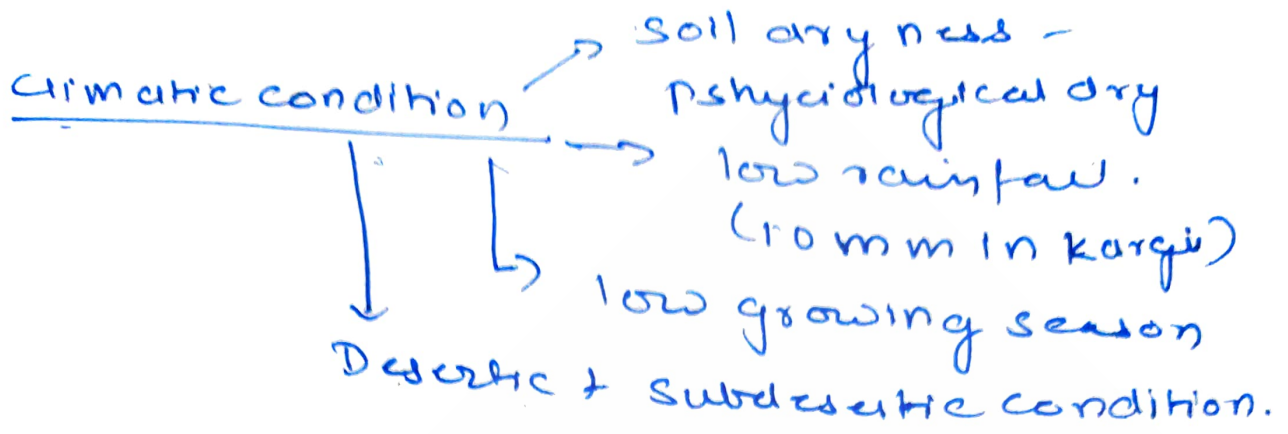 climatic condition
soil dryness -
pshyciological dry
low rainfall.
(10 mm in kargil)
low growing season
Desertic + subdesertic condition.